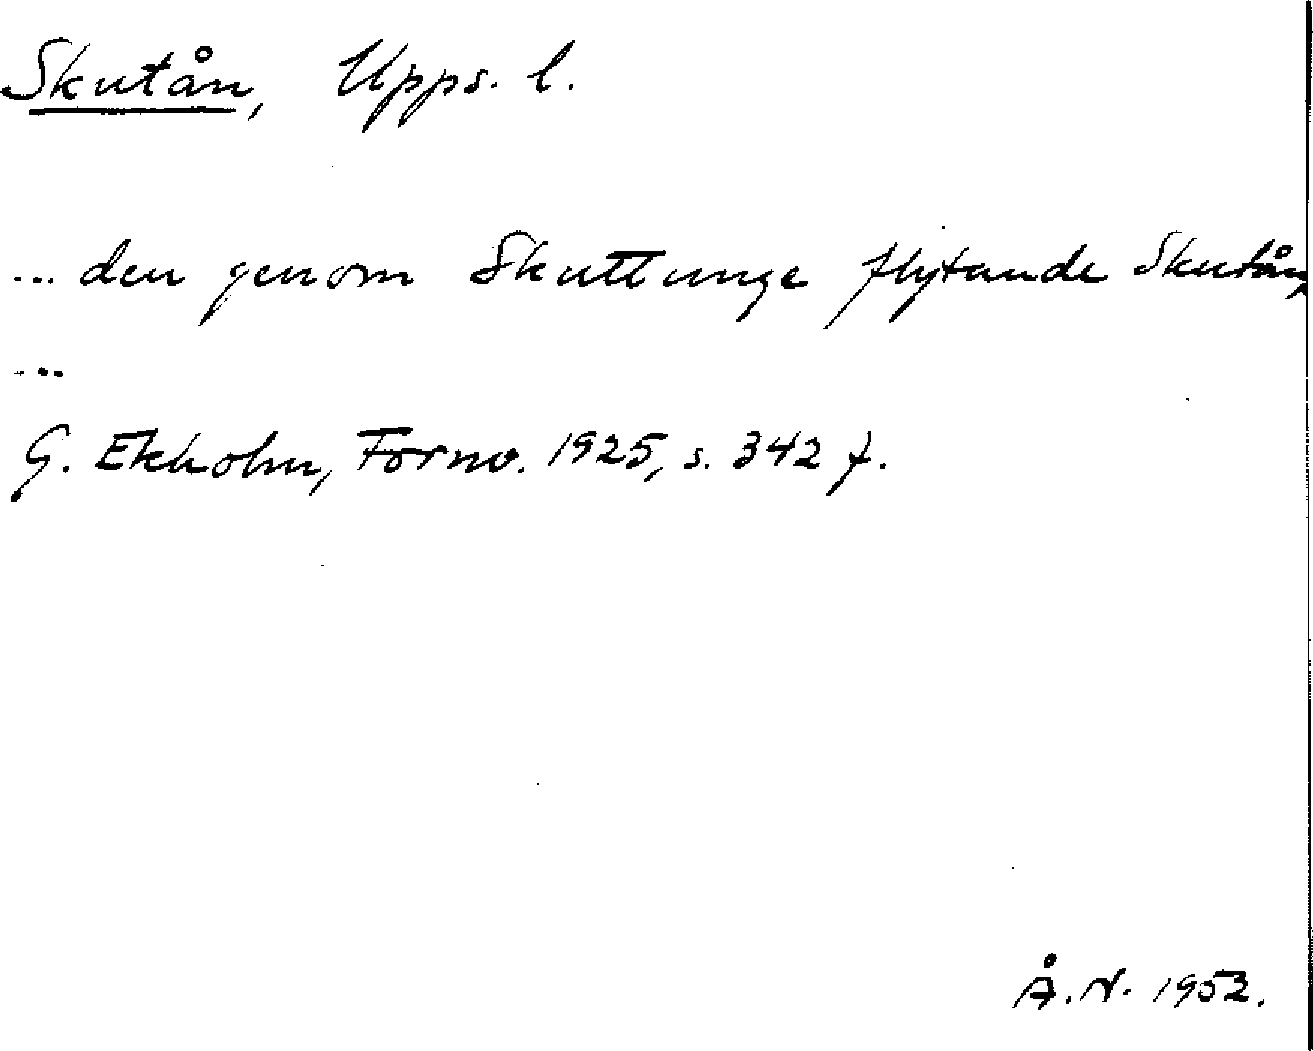 Skutån, Upps. l.
... den genom Skuttunge flytande Skutån,
...
G. Ekholm, Fornv. 1925, s. 342 f.
Å. N. 1952.